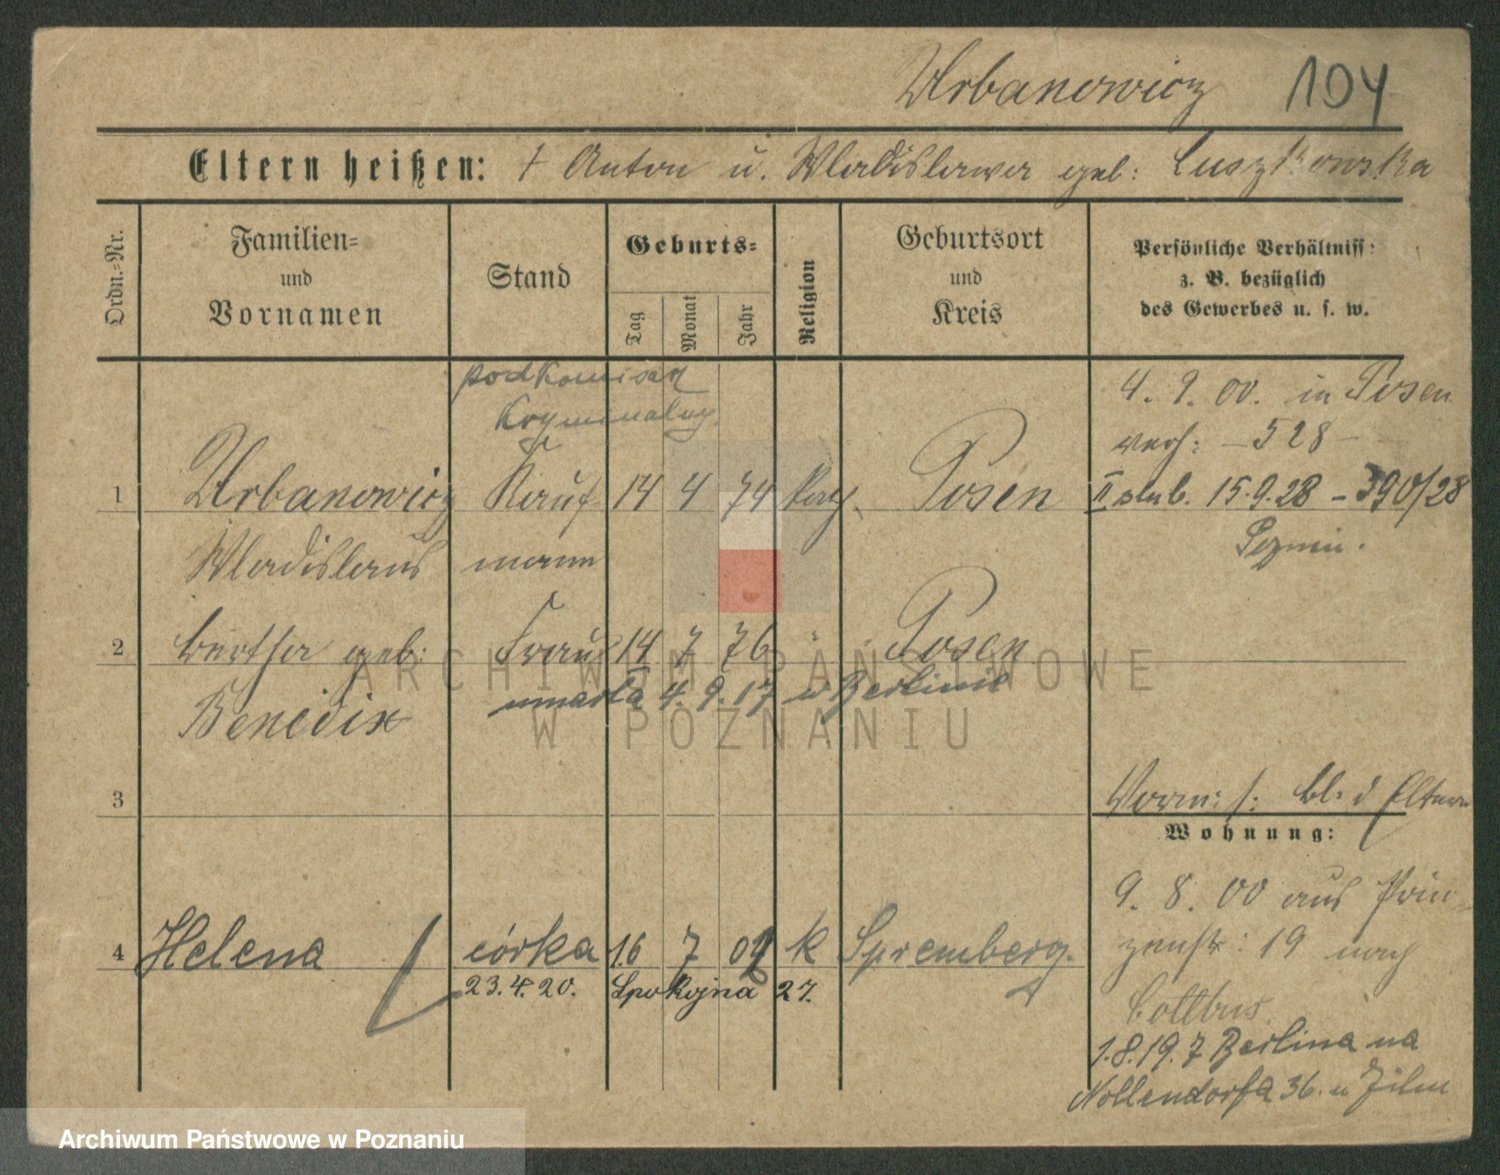 Urbanowicz 104
Eltern heißen: † Anton u. Wladislawa geb: Luszkowska
Ordn.-Nr.
Familien-
und
Vornamen
Stand
Geburts-
Tag
Monat
Jahr
Religion
Geburtsort
und
Kreis
Persönliche Verhältniss:
z. B. bezüglich
des Gewerbes u. s. w.
podkomisarz
kryminalny
1 Urbanowicz Kauf- 14 4 74 kath. Posen
Wladislaus mann
4. 9. 00. in Posen
verh: – 528 –
II ślub. 15.9.28 – 390/28
2 Bertha geb: Frau 14 7 76 " Posen
umarła 4. 9. 17 w Berlinie
Benedix
3
Vorm: s: bl: d Eltern
Wohnung:
4 Helena córka 16 7 02 k Spremberg.
23.4.20. Spokojna 27.
9. 8. 00 aus Prin-
zenstr: 19 nach
Cottbus.
1.8.19. z Berlina na
Nollendorfa 36.
ARCHIWUM PAŃSTWOWE
W POZNANIU
Archiwum Państwowe w Poznaniu